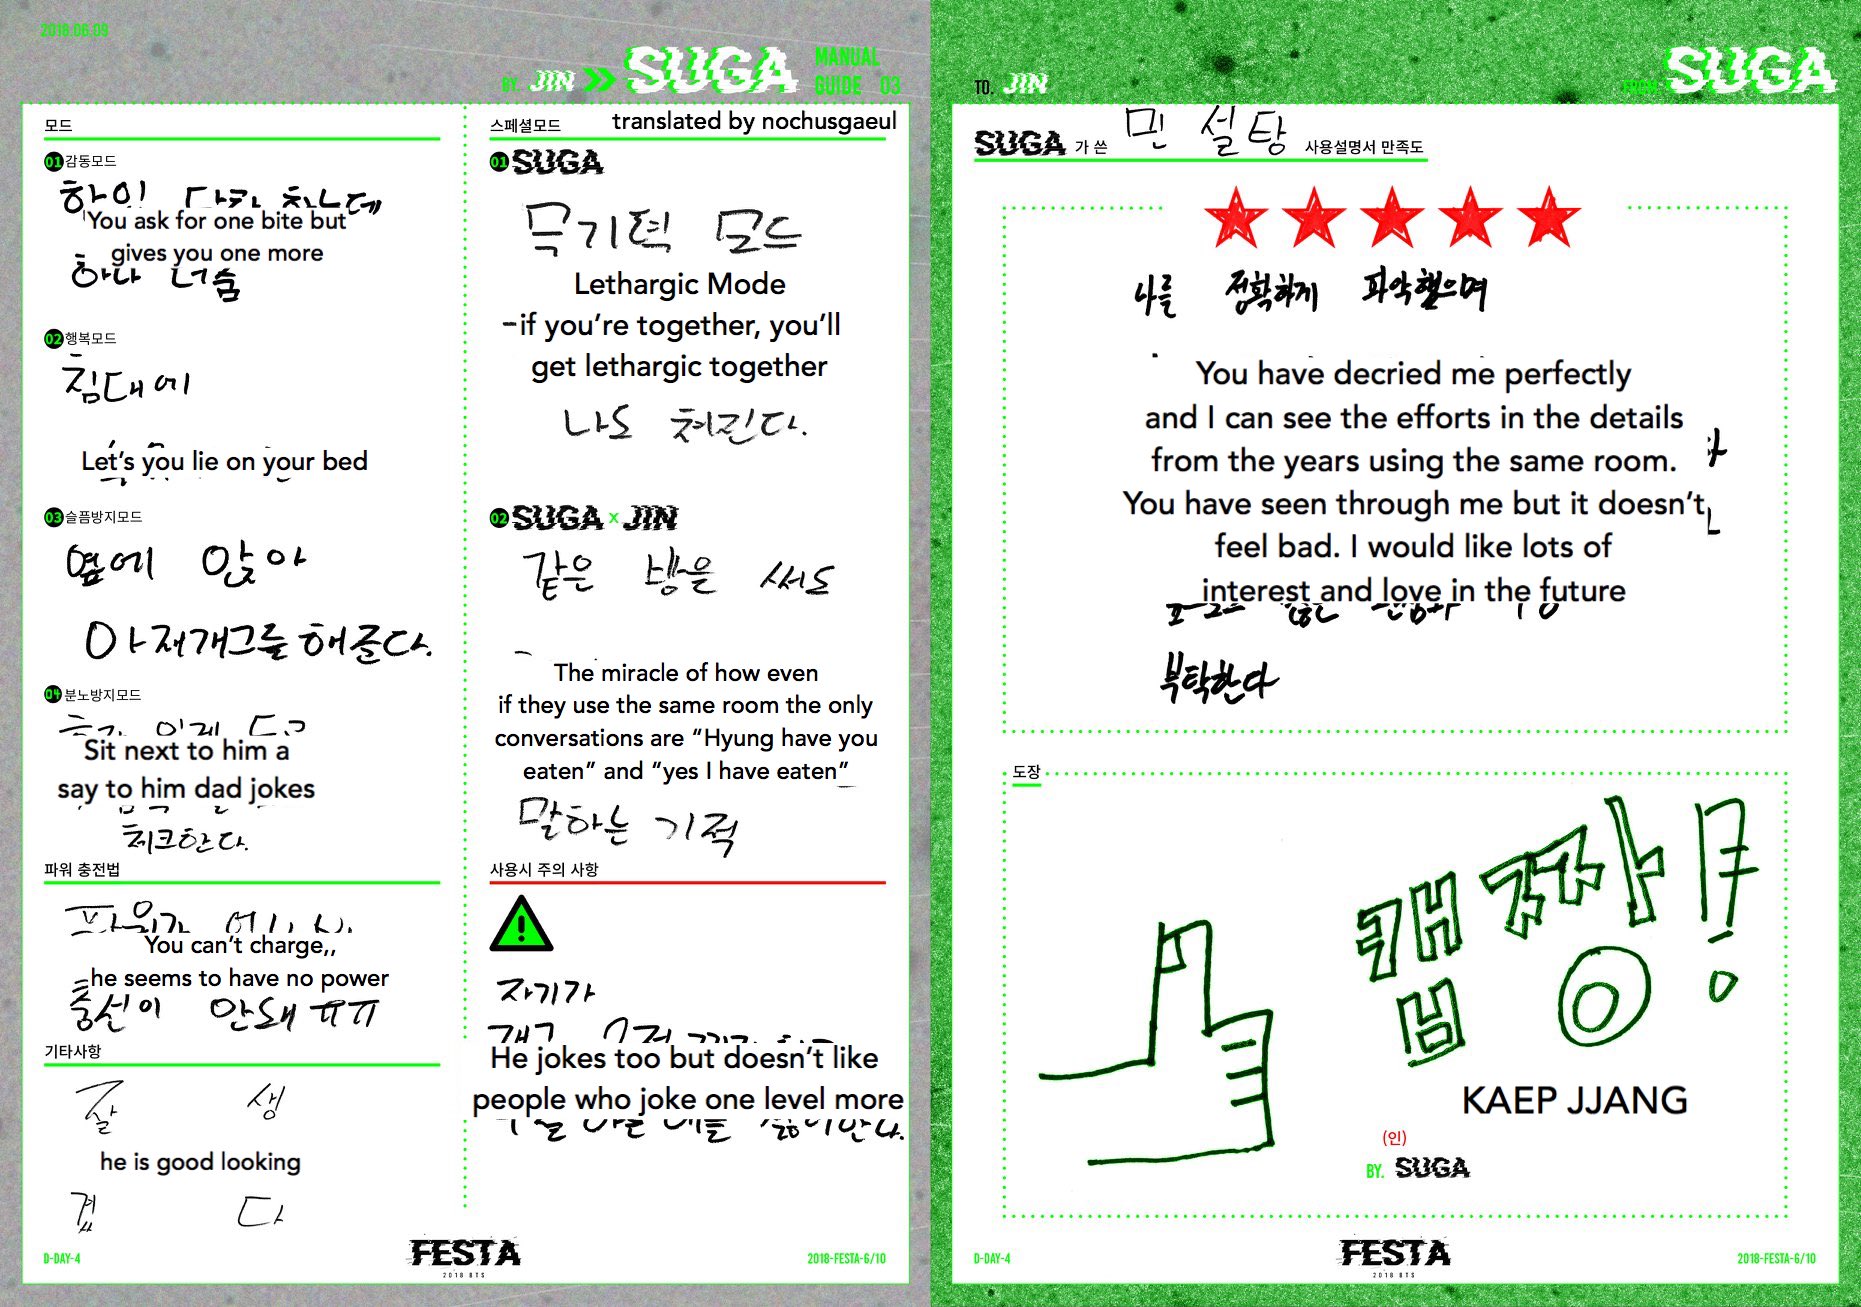 2018.06.09
BY. JIN >> SUGA MANUAL GUIDE 03
모드
01 감동모드
You ask for one bite but
gives you one more
하나 더줌
02 행복모드
침대에
Let's you lie on your bed
03 슬픔방지모드
옆에 앉아
아재개그를 해준다.
04 분노방지모드
Sit next to him a
say to him dad jokes
체크한다.
파워 충전법
You can't charge,,
he seems to have no power
충전이 안돼 ㅠㅠ
기타사항
잘 생
he is good looking
겼 다
스페셜모드
translated by nochusgaeul
01 SUGA
무기력 모드
Lethargic Mode
-if you're together, you'll
get lethargic together
나도 쳐진다.
02 SUGA x JIN
같은 방을 써도
The miracle of how even
if they use the same room the only
conversations are “Hyung have you
eaten” and “yes I have eaten”
말하는 기적
사용시 주의 사항
자기가
He jokes too but doesn't like
people who joke one level more
D-DAY-4
FESTA
2018 BTS
2018-FESTA-6/10
TO. JIN
FROM. SUGA
SUGA 가 쓴 민 설탕 사용설명서 만족도
나를 정확하게 파악했으며
You have decried me perfectly
and I can see the efforts in the details
from the years using the same room.
You have seen through me but it doesn't
feel bad. I would like lots of
interest and love in the future
부탁한다
도장
캡짱!
KAEP JJANG
(인)
BY. SUGA
D-DAY-4
FESTA
2018 BTS
2018-FESTA-6/10